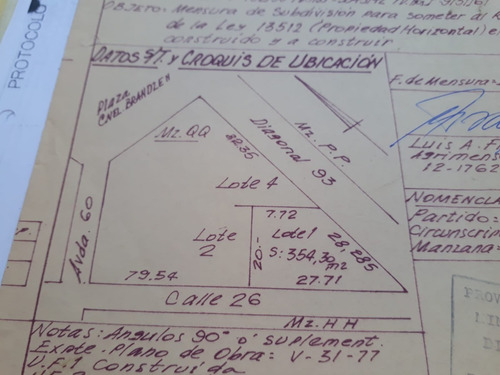 Objeto: Mensura de Subdivisión para someter al
de la Ley 13512 (Propiedad Horizontal) e
construido y a construir
DATOS S/T. Y CROQUIS DE UBICACIÓN
PROTOCOLO
F. de Mensura:
Plaza
Cnel. Brandzen
Mz. QQ
82.35
Diagonal 93
Mz. P.P.
Luis A. F
Agrimens
12-1762
Lote 4
NOMENCLA
Partido:
Circunscrim
Manzana:
Avda. 60
7.72
Lote 1
28,285
Lote
2
20.-
S: 354,30
m2
79.54
27.71
Calle 26
Mz. HH
PROV
Notas: Angulos 90° ó suplement.
Expte. Plano de Obra: V-31-77
U.F.1 Construida